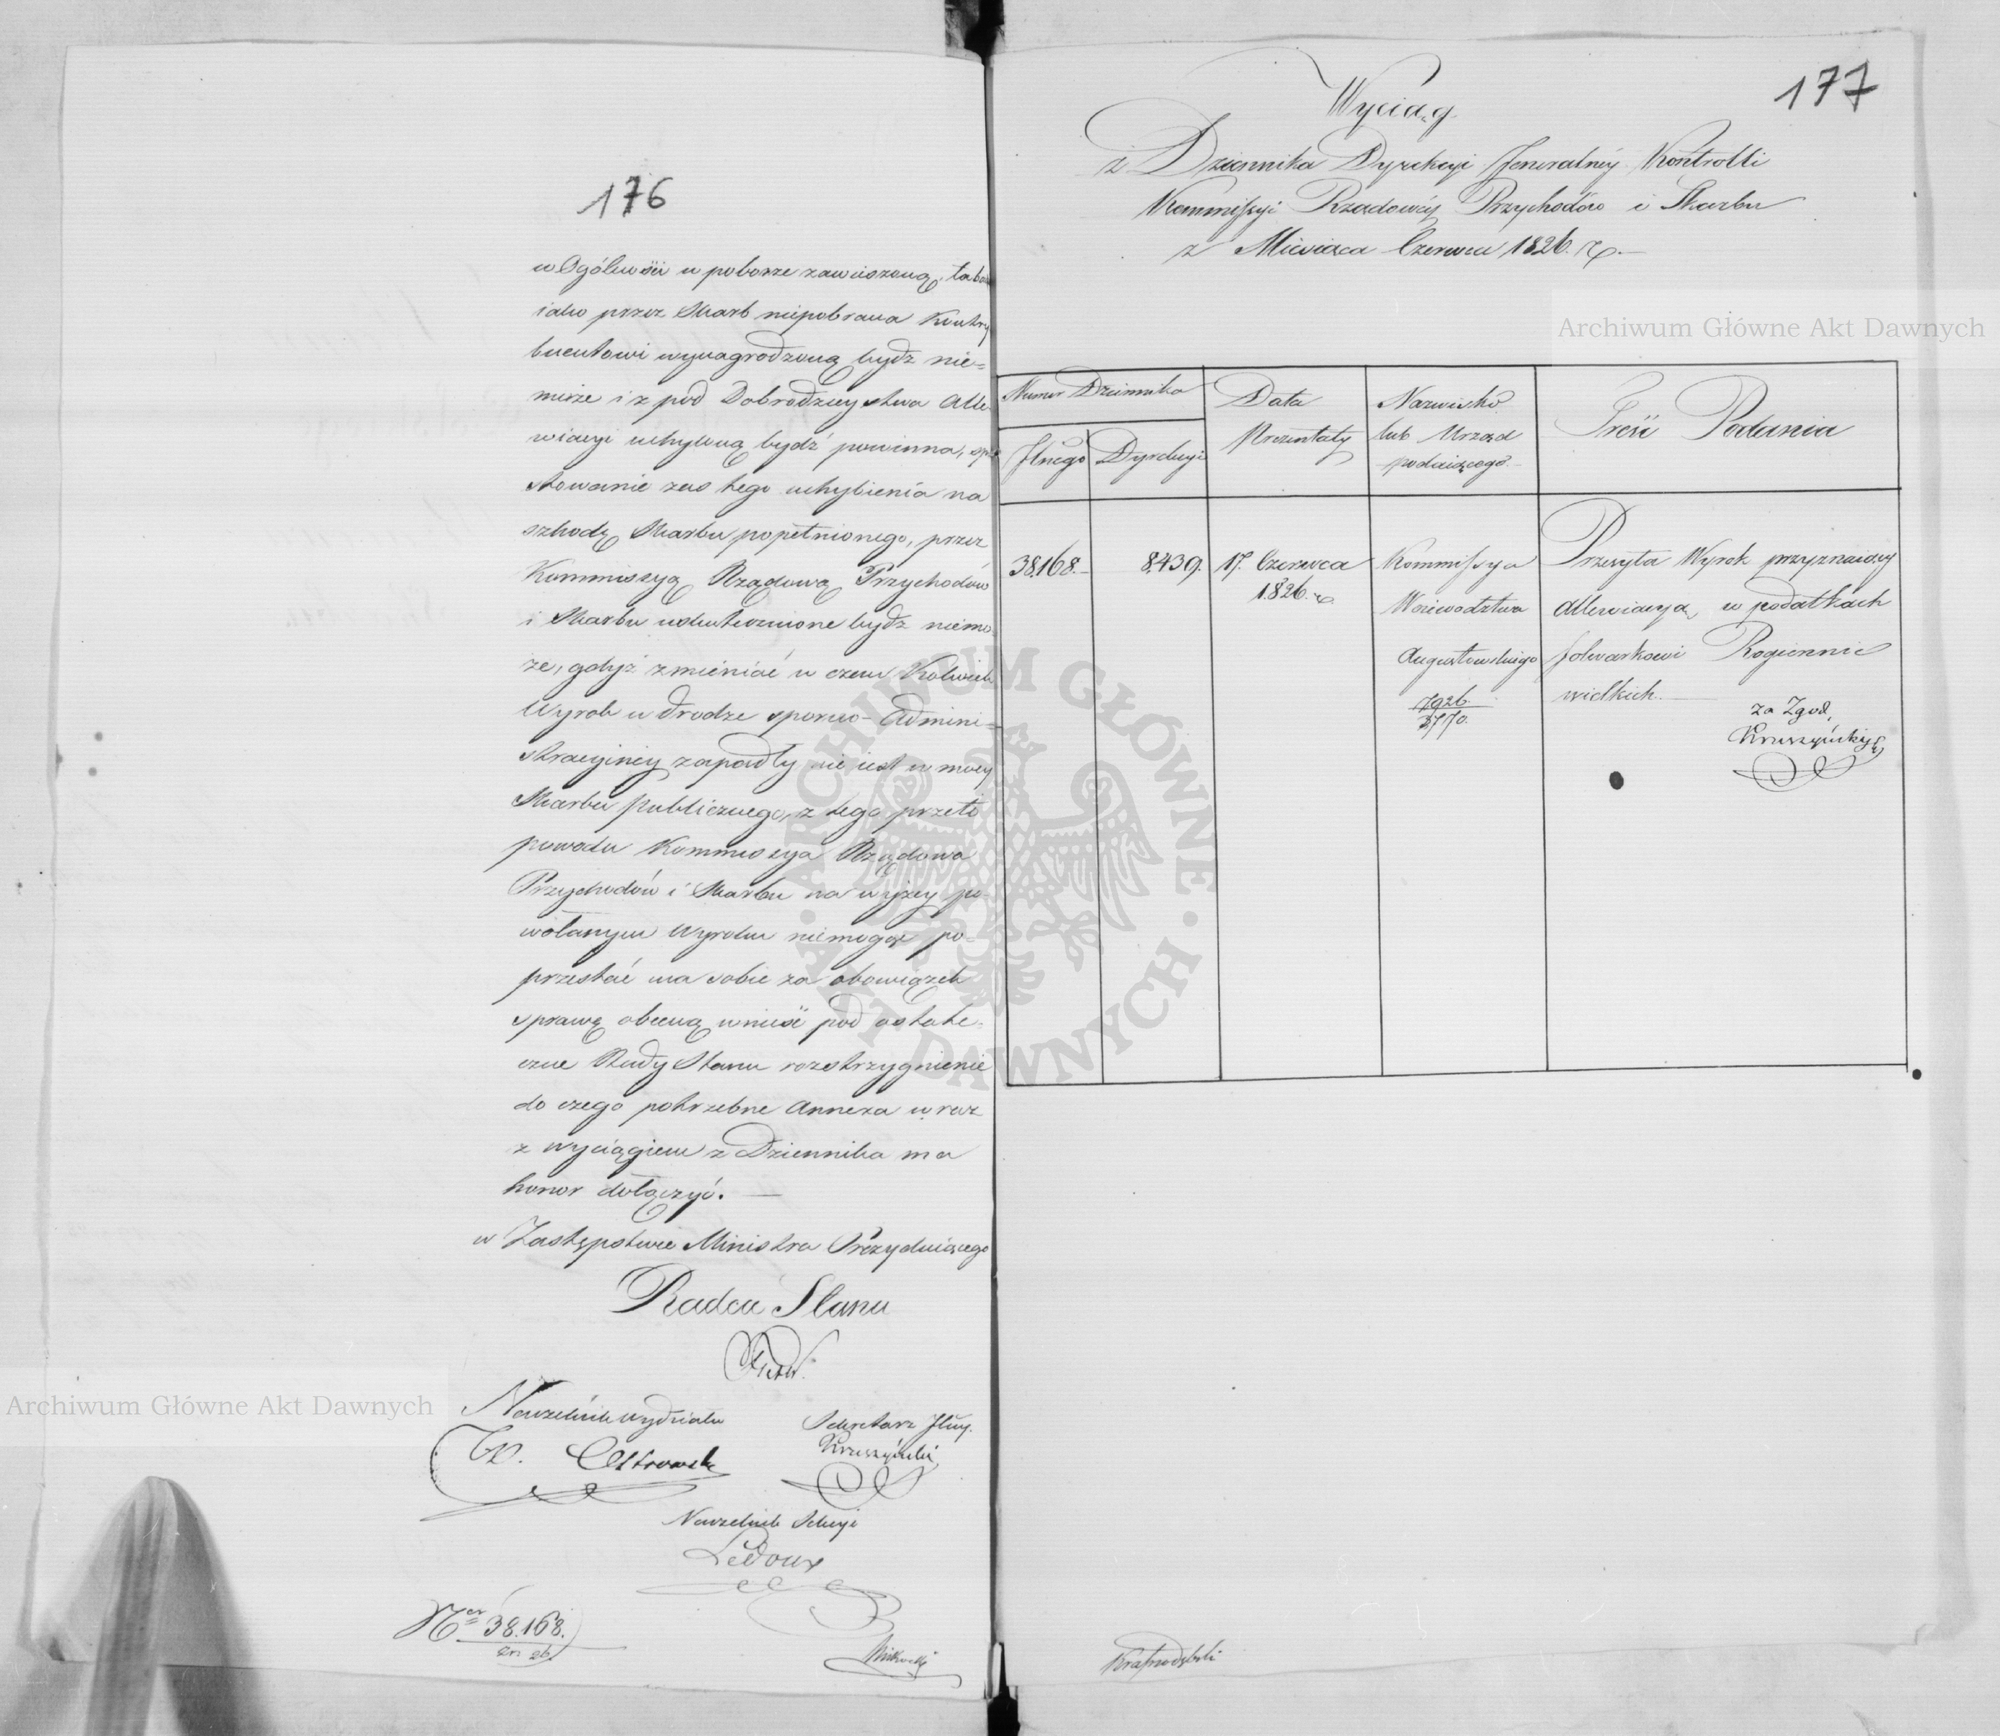 176
w Ogólności w poborze zawieszoną, ta bo
iako przez Skarb niepobrana Kontry
buentowi wynagrodzoną bydź nie=
może i z pod Dobrodzieystwa Alle
wiacyi uchyloną bydź powinna,
stowanie zas tego uchybienia na
szkodę Skarbu popełnionego, przez
Kommissyą Rządową Przychodów
i Skarbu uskutecznione bydz niemo
że, gdyż zmieniać w czem Kolwiek
Wyrok w drodze sporno-Admini-
stracyiney zapadły nie iest w mocy
Skarbu publicznego, z tego przeto
powodu Kommissya Rządowa
Przychodów i Skarbu na wyżey po-
wołanym Wyroku niemogąc po-
przestać ma sobie za obowiązek
sprawę obecną wnieść pod ostate-
czne Rady Stanu rozstrzygnienie
do czego potrzebne Annexa wraz
z wyciągiem z Dziennika ma
honor dołączyć. —
w Zastępstwie Ministra Prezyduiącego
Radca Stanu
Naczelnik Wydziału
Sekretarz Jlny.
Ostrowski
Kruszyński
Naczelnik Sekcyi
Ledoux
Ner 38.168.
177
Wyciąg
z Dziennika Dyrekcyi Jeneralnéy Kontrolli
Kommissyi Rządowéy Przychodów i Skarbu
z Miesiąca Czerwca 1826. r. —
Numer Dziennika
Jlnego
Dyrekcyi
Data
Prezentaty
Nazwisko
lub Urząd
podaiącego.
Treść Podania
38,168.
8,439.
17. Czerwca
1826. r.
Kommissya
Woiewodztwa
Augustowskiego
7926
3770.
Przesyła Wyrok przyznaiący
Allewiacyą, w podatkach
folwarkowi Rogiennic
wielkich.
za Zgod,
Kruszyński
Archiwum Główne Akt Dawnych
Archiwum Główne Akt Dawnych
ARCHIWUM GŁÓWNE · AKT DAWNYCH ·